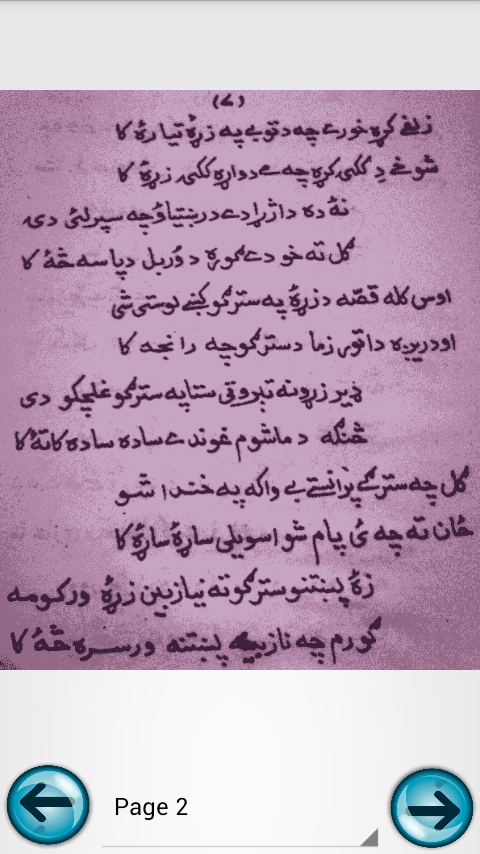 (۷)
زلفې کړه خورې چه د توبې په زړهٔ تیارهٔ کا
شوخې دِ ککی کړه چه مې دواړه ککی زړهٔ کا
نهٔ ده دا ژړا دے دربښتیاوٗ چه سپرلئ دی
ګل ته خو دے ګوره د وُربل دپاسه څهٔ کا
اوس کله قصّه د زړهٔ په سترګو کښے لوستی شی
اودریده داتور زما د سترګو چه رانجه کا
ډیر زړونه تېروتی ستا په سترګو غلچکو دی
څنګه د ماشوم غوندے ساده ساده کاتهٔ کا
ګل چه سترګے پرانستے بے واکه په خندا شو
ځان ته چه ئ پام شو اسویلی ساړهٔ ساړهٔ کا
زهٔ پښتنو سترګو ته نیازبین زړهٔ ورکومه
ګورم چه نازبین پښتنه ورسره څهٔ کا
Page 2